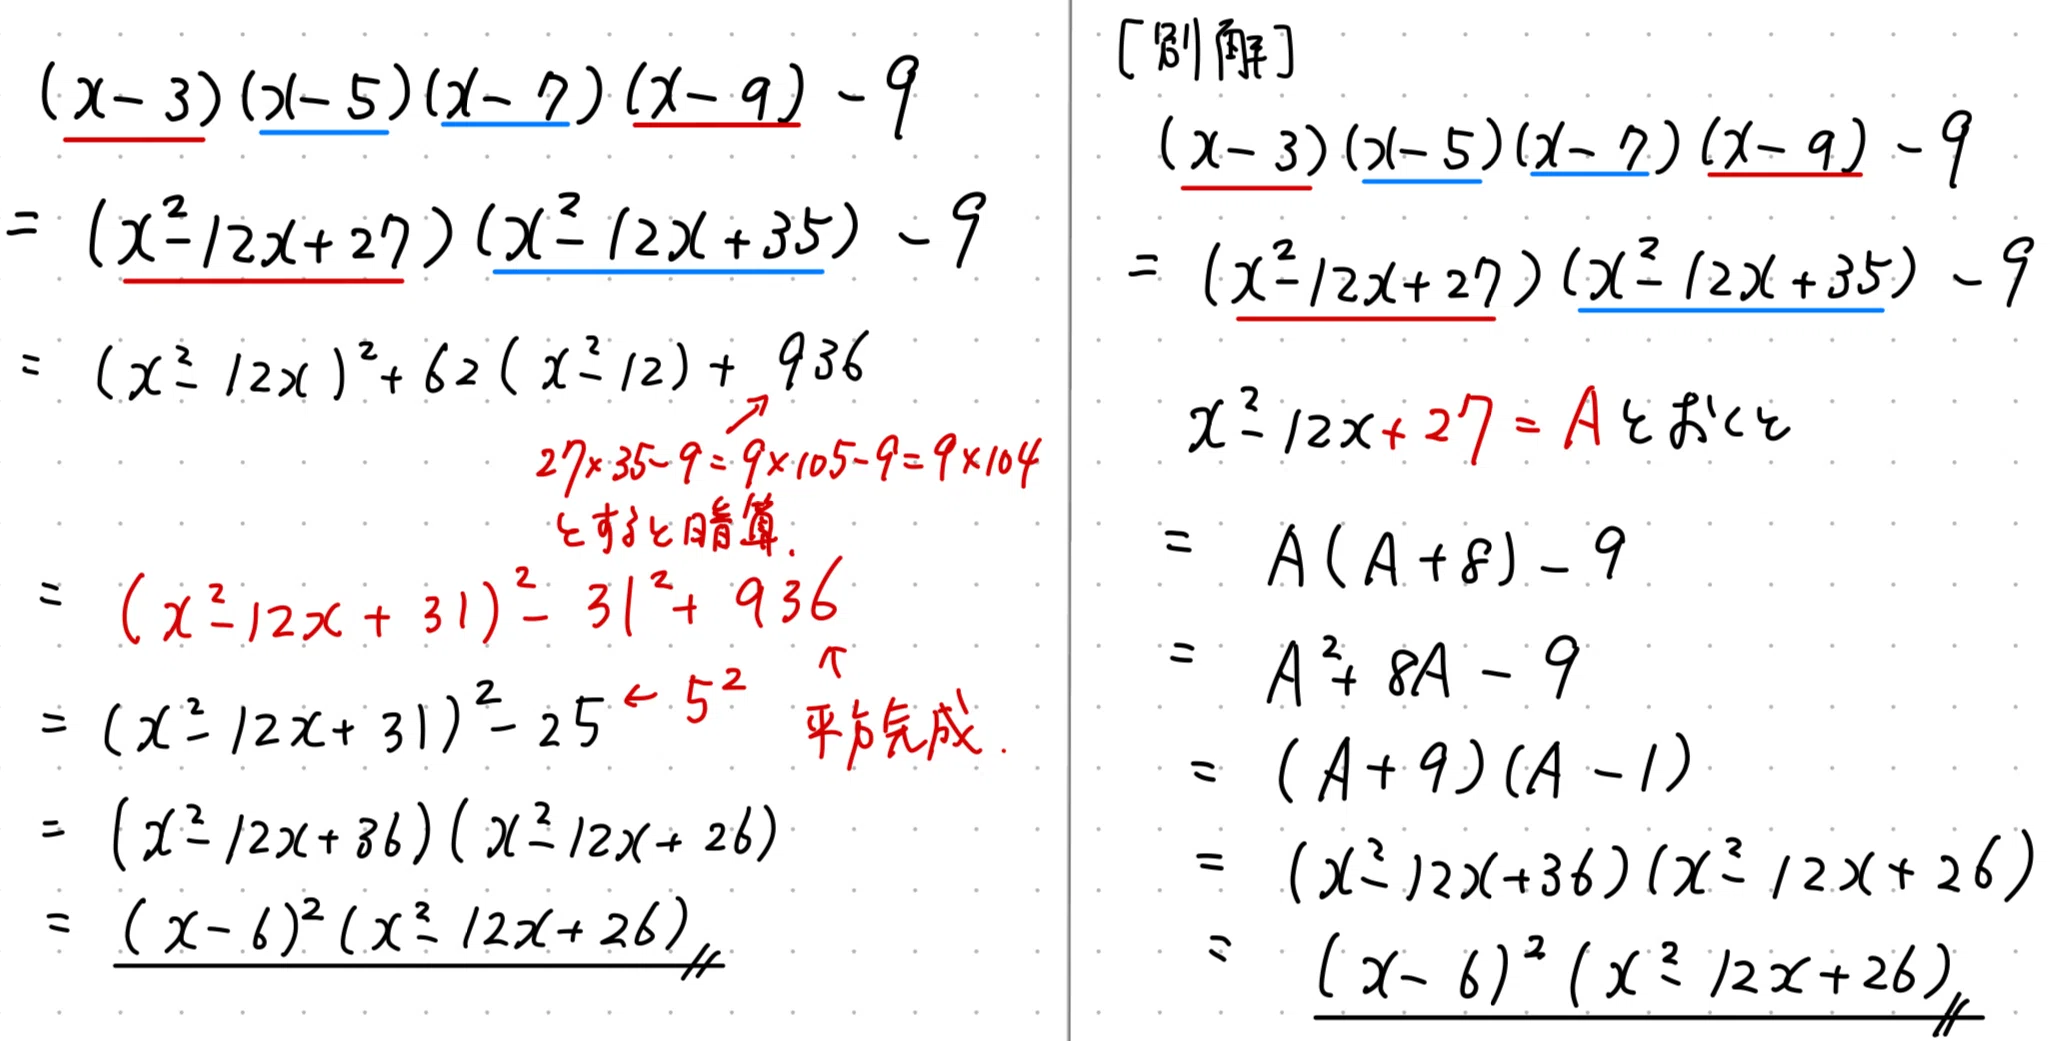 (x-3)(x-5)(x-7)(x-9)-9
= (x²-12x+27)(x²-12x+35)-9
= (x²-12x)²+62(x²-12)+936
27×35-9=9×105-9=9×104
とすると暗算.
= (x²-12x+31)²-31²+936
↑
平方完成.
= (x²-12x+31)²-25 ← 5²
= (x²-12x+36)(x²-12x+26)
= (x-6)²(x²-12x+26)
[別解]
(x-3)(x-5)(x-7)(x-9)-9
= (x²-12x+27)(x²-12x+35)-9
x²-12x+27=Aとおくと
= A(A+8)-9
= A²+8A-9
= (A+9)(A-1)
= (x²-12x+36)(x²-12x+26)
= (x-6)²(x²-12x+26)